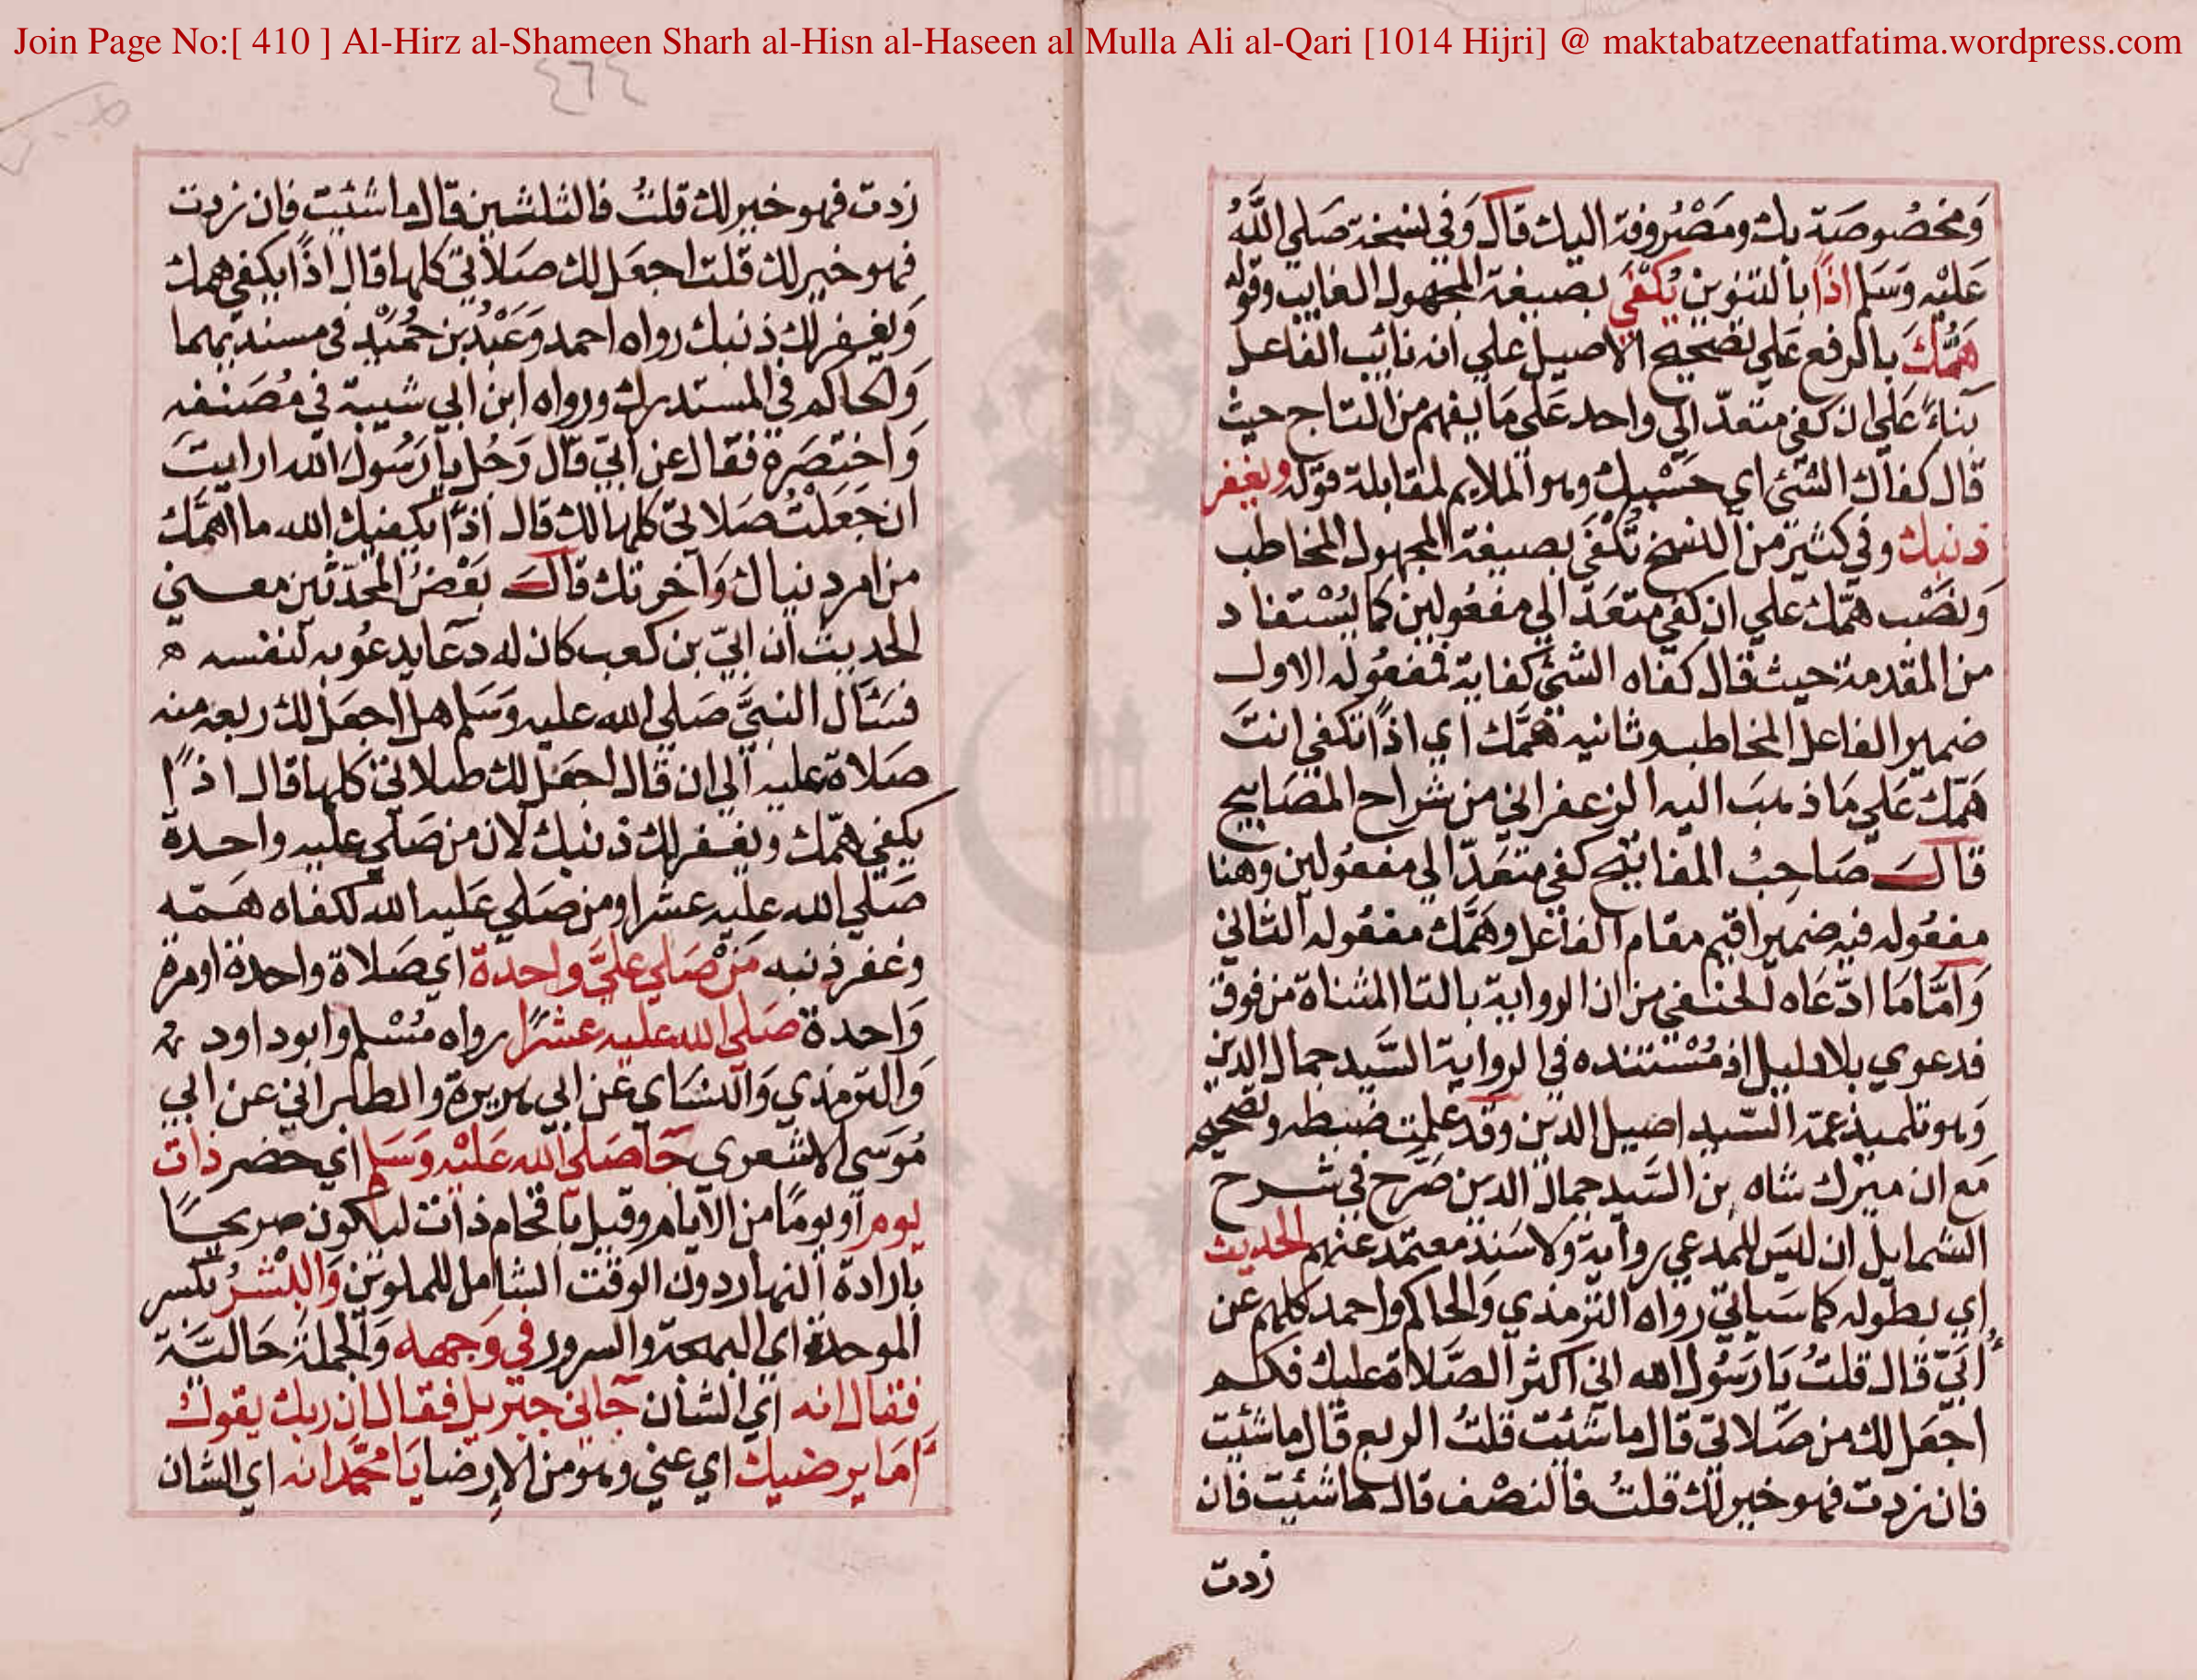 Join Page No:[ 410 ] Al-Hirz al-Shameen Sharh al-Hisn al-Haseen al Mulla Ali al-Qari [1014 Hijri] @ maktabatzeenatfatima.wordpress.com
وَمخصُوصَة بك ومَصْروفة اليك قال وَفي نسخة صَلي اللهُ
عَليْه وَسَلم اذًا بالتنوين يُكْفَي بصيغة المجهول الغايب وقوله
هَمُّكَ بالرفع عَلي تصحيح الاصيل علي انه نائب الفاعل
بَناءً عَلي ان كفي متعدّ الي واحد عَلي مَا يفهم من التاج حيث
قال كفاك الشئ اي حَسْبك وهو الملايم لمقابلة قوله ويغفر
ذنبك وفي كثير من النسخ تُكْفَي بصيغة المجهول المخاطب
وَنصْب همّك علي ان كفي متعَدّ الي مفعُولين كما يُسْتفاد
من المقدمة حيث قال كفاه الشئ كفاية فمفعُوله الاول
ضمير الفاعل المخاطب وثانيه همَّك اي اذًا تكفي انتَ
هَمّك عَلي مَا ذهبَ اليه الزعفراني من شراح المصَابيح
قالَ صَاحِبُ المفاتيح كفي متعَدّ الي مفعُولين وهنا
مفعُوله فيه ضمير اقيم مقام الفاعل وهَمَّك مفعُوله الثاني
وَامَّا مَا ادّعَاه الحنفي من ان الرواية بالتا المثناة من فوق
فدعوي بلا دليل اذ مُسْتنده في الرواية السَّيد جمال الدين
وَهو تلميذ عمّه السّيد اصيل الدين وقد علمت ضبطه وتصحيحه
مَع ان ميرك شاه بن السَّيد جمال الدين صَرّح في شرح
الشمايل ان ليسَ للمدعي رواية وَلا سَند معتمد عنهم الحديث
اي بطوله كما سَياتي رواه الترمذي وَالحاكم واحمد كلهم عن
أبَيّ قال قلتُ يَا رَسُول الله اني اكثر الصّلاة عليك فكم
اجعَل لك من صَلاتي قال ما شئيت قلتُ الربع قال ما شئيت
فان زدت فهو خير لك قلتُ فالنصْف قال ما شئيت فان
زدت
٤٦٤
زدت فهو خير لك قلتُ فالثلثين قال ما شئيت فان زدت
فهو خير لك قلت اجعَل لك صَلاتي كلها قال اذًا يكفي همك
وَيغفر لك ذنبك رواه احمد وَعَبْدُ بن حُمَيْد في مسنديهما
وَالحاكم في المستدرك ورواه ابن ابي شيبة في مُصَنفه
وَاختصَرة فقال عن ابَيّ قال رَجُل يا رَسُول الله ارايتَ
ان جَعَلتُ صَلاتي كلها لك قال اذًا يكفيك الله ما اهَمّك
من امر دنياك وَآخرتك قالَ بَعْضُ المحدّثين معني
الحديث ان ابَيّ بن كعب كان له دعَا يدعُوبه لنفسه ه
فسَئال النبيَّ صَلي الله عليه وَسَلم هل اجعَل لك ربعه منه
صَلاة عليه الي ان قال اجعَل لك صلاتي كلها قال اذًا
يكفي همّك ويغفر لك ذنبك لان من صَلي عليه واحدة
صَلي الله عليه عشرا ومن صَلي عَليه الله لكفاه هَمّه
وغفر ذنبه مَنْ صَلي عليَّ واحدة اي صَلاة واحدة او مرة
وَاحدة صَلي الله عليه عشرًا رواه مُسْلم وابو داود
وَالترمذي وَالنسَاي عن ابي هريرة والطبراني عن ابي
مُوسَي الاشعري جَا صَلي الله عَليْه وَسَلم اي حضر ذات
يوم اَو يومًا من الايام وقيل باقحام ذات ليكون صريحًا
بارادة النهار دون الوقت الشامل للملوين وَالبشرُ بكسر
الموحدة اي البهجة والسرور في وَجهه وَالجملة حَالتَة
فقال انه اي الشان جاني جبريل فقال ان ربك يقول
اَمَا يرضيك اي عني وهو من الارضا يَا محمَّد انه اي الشان